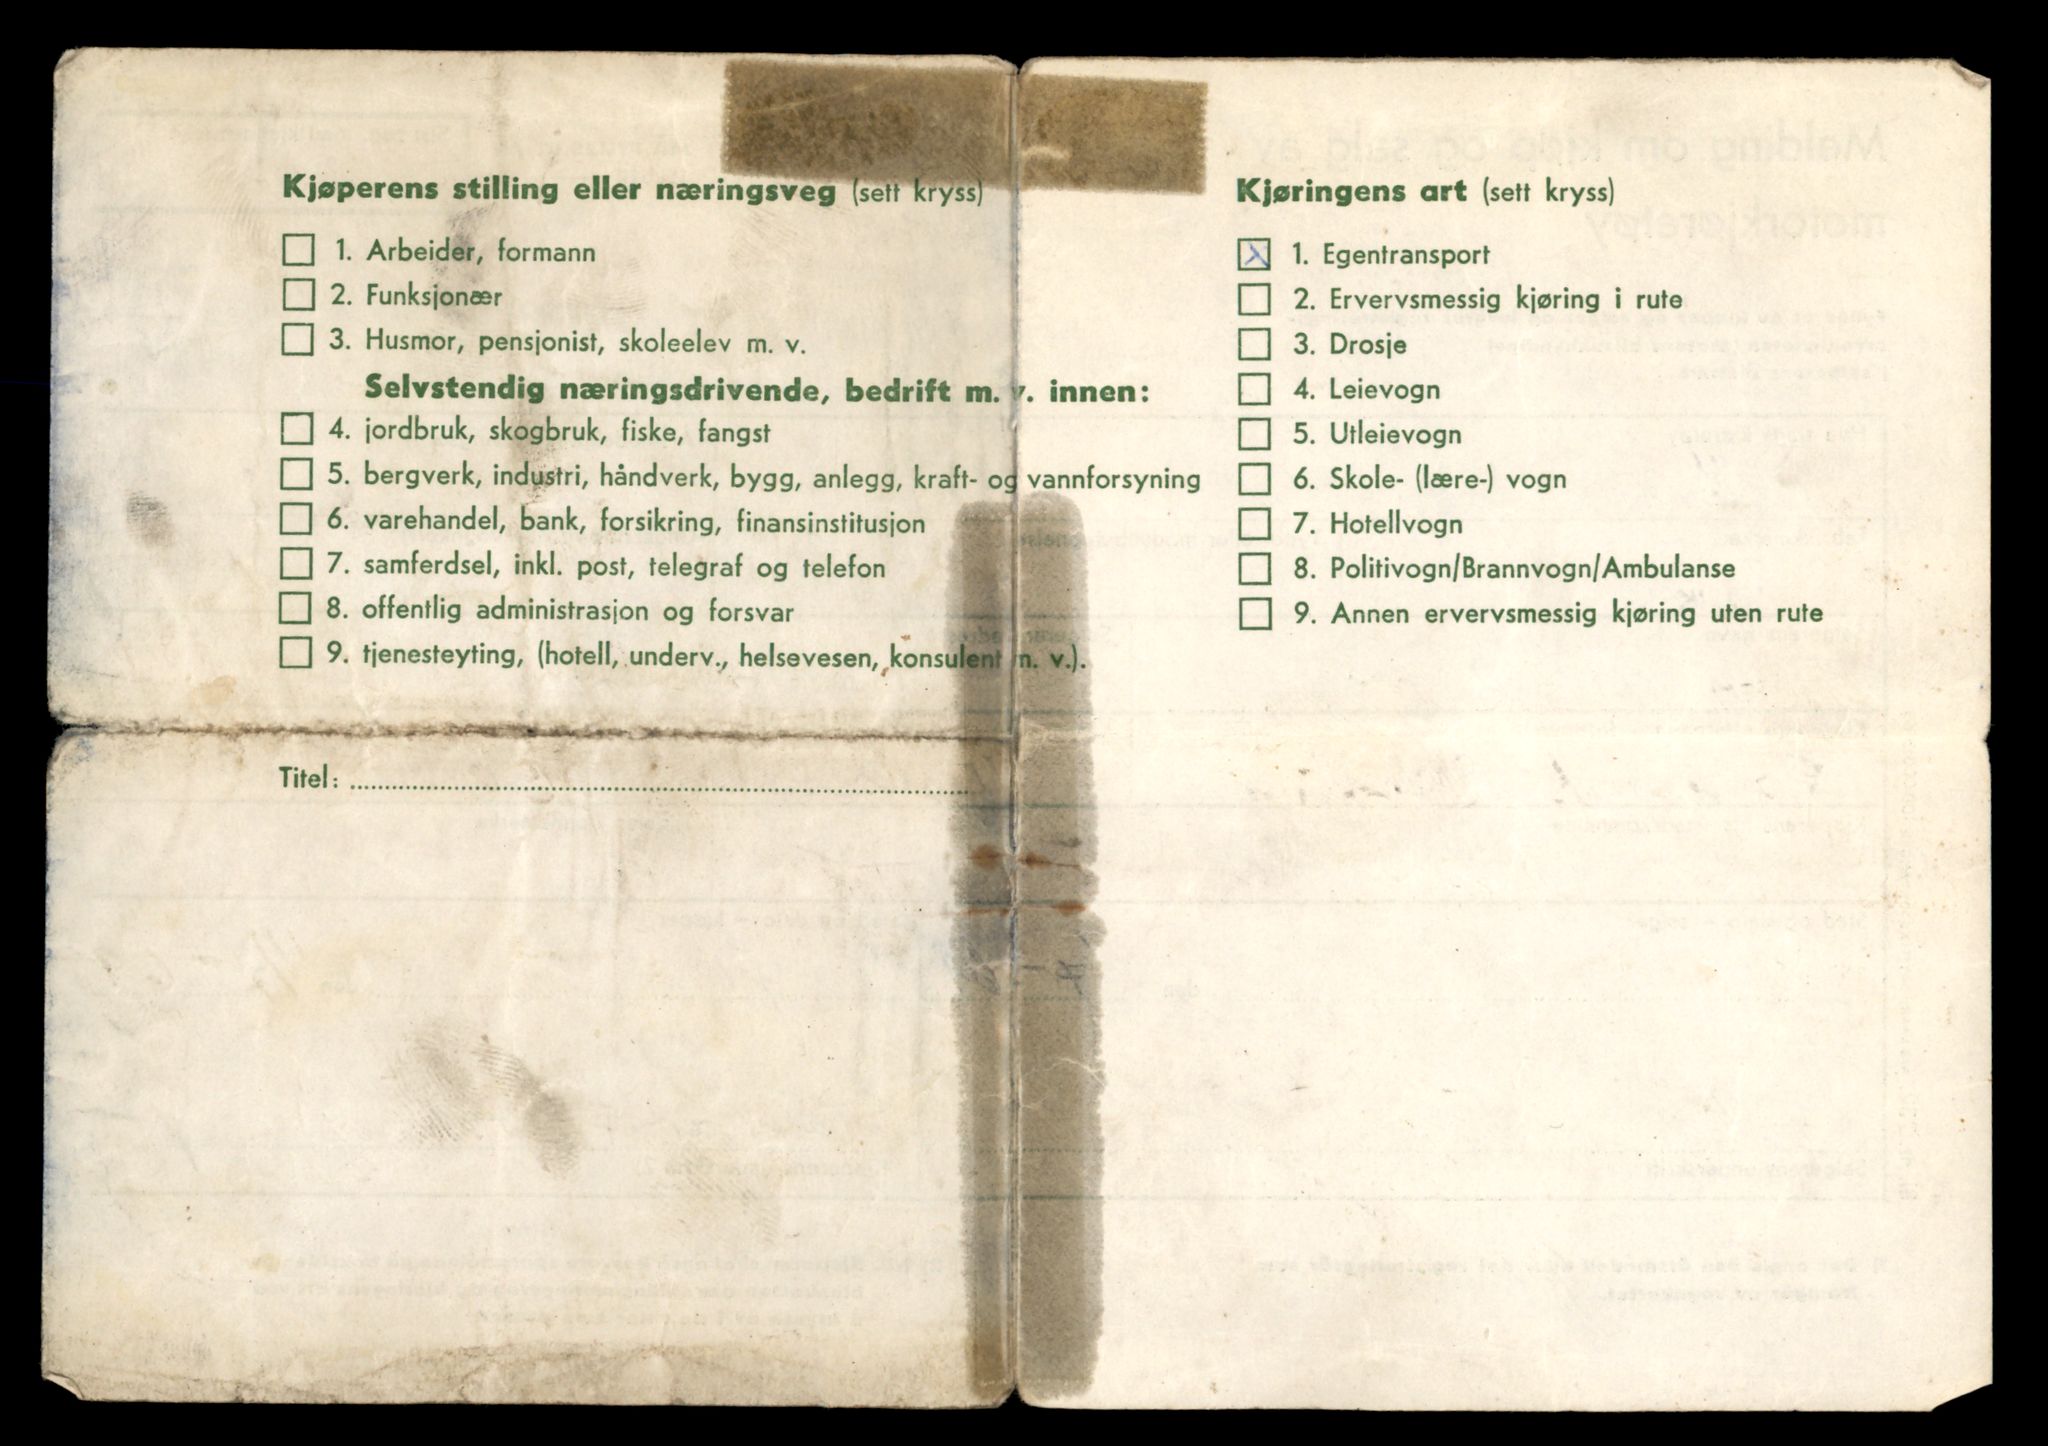 Kjøperens stilling eller næringsveg (sett kryss)
1. Arbeider, formann
2. Funksjonær
3. Husmor, pensjonist, skoleelev m. v.
Selvstendig næringsdrivende, bedrift m. v. innen:
4. jordbruk, skogbruk, fiske, fangst
5. bergverk, industri, håndverk, bygg, anlegg, kraft- og vannforsyning
6. varehandel, bank, forsikring, finansinstitusjon
7. samferdsel, inkl. post, telegraf og telefon
8. offentlig administrasjon og forsvar
9. tjenesteyting, (hotell, underv., helsevesen, konsulent m. v.).
Titel:
Kjøringens art (sett kryss)
X 1. Egentransport
2. Ervervsmessig kjøring i rute
3. Drosje
4. Leievogn
5. Utleievogn
6. Skole- (lære-) vogn
7. Hotellvogn
8. Politivogn/Brannvogn/Ambulanse
9. Annen ervervsmessig kjøring uten rute